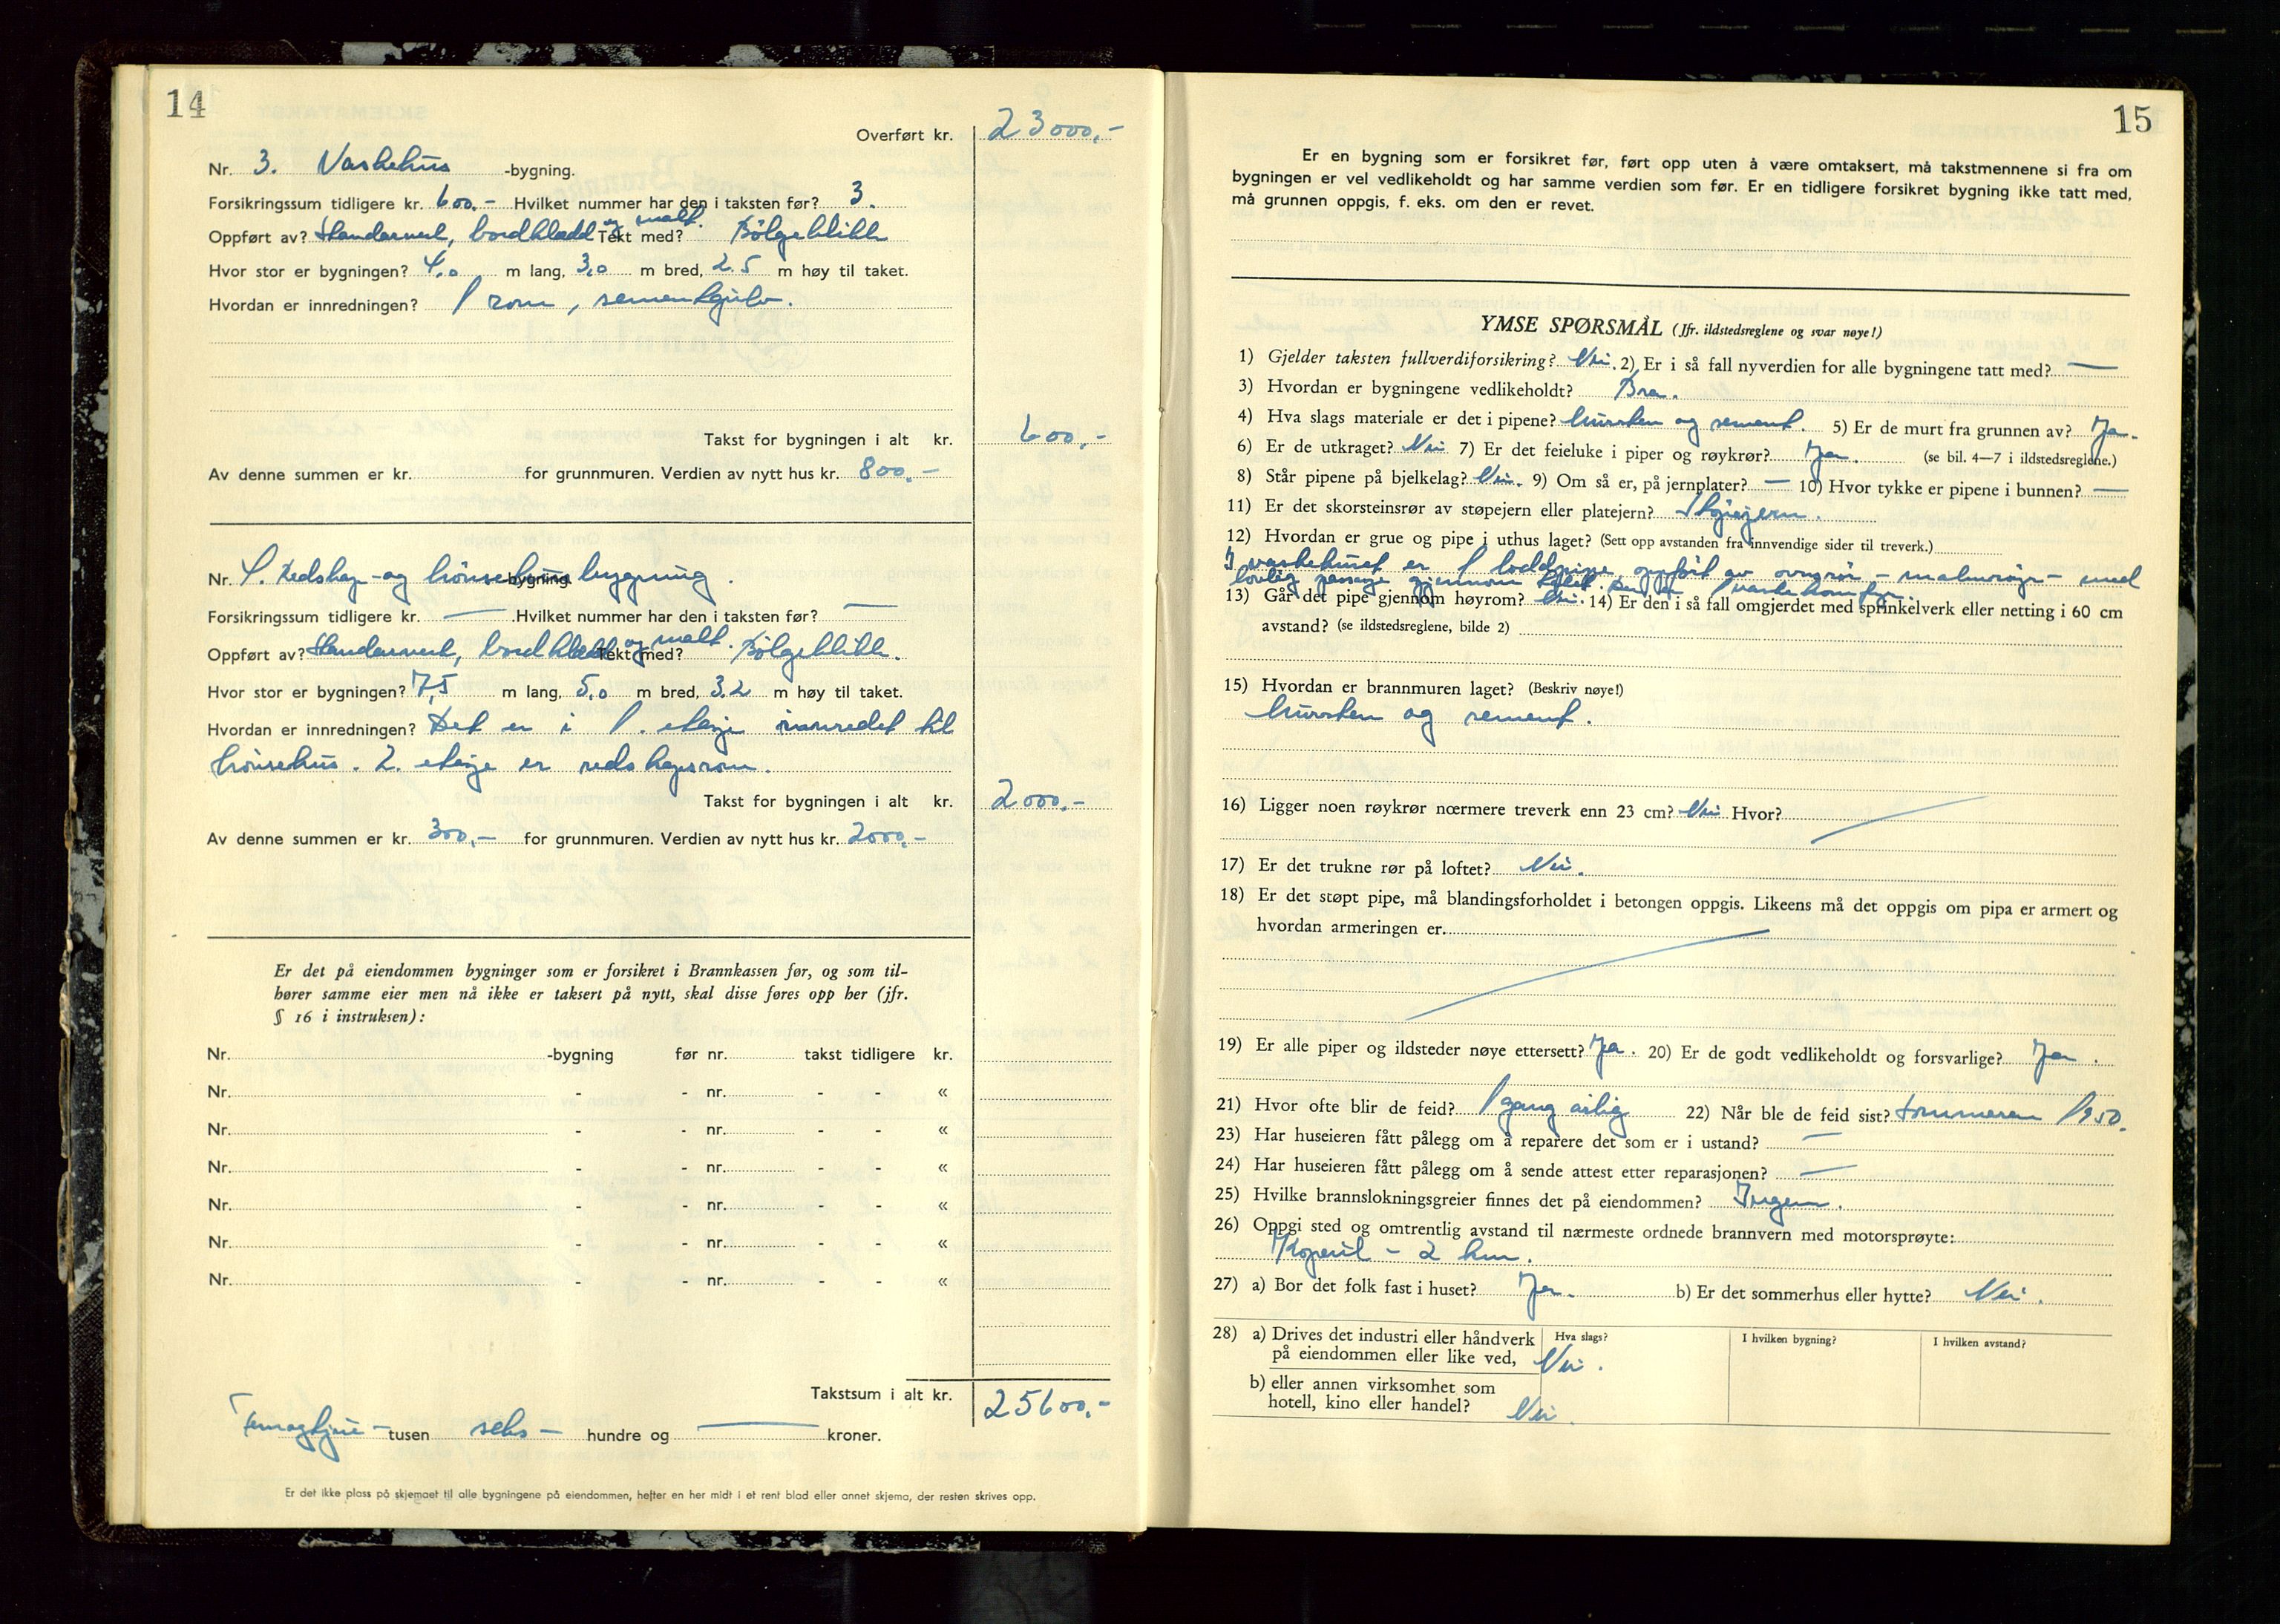 14
Overført kr. 23000,-
Nr. 3. Vaskehus -bygning.
Forsikringssum tidligere kr. 600.- Hvilket nummer har den i taksten før? 3.
Oppført av? Standarverk, bordkledd og malt. Tekt med? Bölgeblikk
Hvor stor er bygningen? 4.0 m lang, 3.0 m bred, 2.5 m høy til taket.
Hvordan er innredningen? 1 rom, sementgulv.
Takst for bygningen i alt kr. 600,-
Av denne summen er kr. for grunnmuren. Verdien av nytt hus kr. 800.-
Nr. 4. Redskap- og hönsehus bygning -bygning.
Forsikringssum tidligere kr. — Hvilket nummer har den i taksten før? —
Oppført av? Standarverk, bordkledd og malt. Tekt med? Bölgeblikk.
Hvor stor er bygningen? 7,5 m lang, 5.0 m bred, 3.2 m høy til taket.
Hvordan er innredningen? Det er i 1. etasje innredet til
hönsehus. 2. etasje er redskapsrom.
Takst for bygningen i alt kr. 2000,-
Av denne summen er kr. 300,- for grunnmuren. Verdien av nytt hus kr. 2000,-
Er det på eiendommen bygninger som er forsikret i Brannkassen før, og som til-
hører samme eier men nå ikke er taksert på nytt, skal disse føres opp her (jfr.
§ 16 i instruksen):
Nr. -bygning før nr. takst tidligere kr.
Nr. - - nr. - - «
Nr. - - nr. - - «
Nr. - - nr. - - «
Nr. - - nr. - - «
Nr. - - nr. - - «
Nr. - - nr. - - «
Takstsum i alt kr. 25600,-
Femogtjue - tusen seks - hundre og — kroner.
Er det ikke plass på skjemaet til alle bygningene på eiendommen, hefter en her midt i et rent blad eller annet skjema, der resten skrives opp.
15
Er en bygning som er forsikret før, ført opp uten å være omtaksert, må takstmennene si fra om
bygningen er vel vedlikeholdt og har samme verdien som før. Er en tidligere forsikret bygning ikke tatt med,
må grunnen oppgis, f. eks. om den er revet.
YMSE SPØRSMÅL (Jfr. ildstedsreglene og svar nøye!)
1) Gjelder taksten fullverdiforsikring? Nei. 2) Er i så fall nyverdien for alle bygningene tatt med? —
3) Hvordan er bygningene vedlikeholdt? Bra.
4) Hva slags materiale er det i pipene? Mursten og sement. 5) Er de murt fra grunnen av? Ja.
6) Er de utkraget? Nei 7) Er det feieluke i piper og røykrør? Ja. (se bil. 4—7 i ildstedsreglene.)
8) Står pipene på bjelkelag? Nei. 9) Om så er, på jernplater? — 10) Hvor tykke er pipene i bunnen? —
11) Er det skorsteinsrør av støpejern eller platejern? Stöpejern.
12) Hvordan er grue og pipe i uthus laget? (Sett opp avstanden fra innvendige sider til treverk.)
I vaskehuset er 1 loddpipe oppført av ovnsrör - malmrör - med
lovlig passage gjennom taket. Der er 1 vaskekomfyr.
13) Går det pipe gjennom høyrom? Nei. 14) Er den i så fall omgjerdet med sprinkelverk eller netting i 60 cm
avstand? (se ildstedsreglene, bilde 2)
15) Hvordan er brannmuren laget? (Beskriv nøye!)
Mursten og sement.
16) Ligger noen røykrør nærmere treverk enn 23 cm? Nei Hvor?
17) Er det trukne rør på loftet? Nei.
18) Er det støpt pipe, må blandingsforholdet i betongen oppgis. Likeens må det oppgis om pipa er armert og
hvordan armeringen er.
19) Er alle piper og ildsteder nøye ettersett? Ja. 20) Er de godt vedlikeholdt og forsvarlige? Ja.
21) Hvor ofte blir de feid? 1 gang årlig 22) Når ble de feid sist? Sommeren 1950.
23) Har huseieren fått pålegg om å reparere det som er i ustand? —
24) Har huseieren fått pålegg om å sende attest etter reparasjonen? —
25) Hvilke brannslokningsgreier finnes det på eiendommen? Ingen.
26) Oppgi sted og omtrentlig avstand til nærmeste ordnede brannvern med motorsprøyte:
Kopervik - 2 km.
27) a) Bor det folk fast i huset? Ja. b) Er det sommerhus eller hytte? Nei.
28) a) Drives det industri eller håndverk Hva slags? I hvilken bygning? I hvilken avstand?
på eiendommen eller like ved, Nei.
b) eller annen virksomhet som
hotell, kino eller handel? Nei.